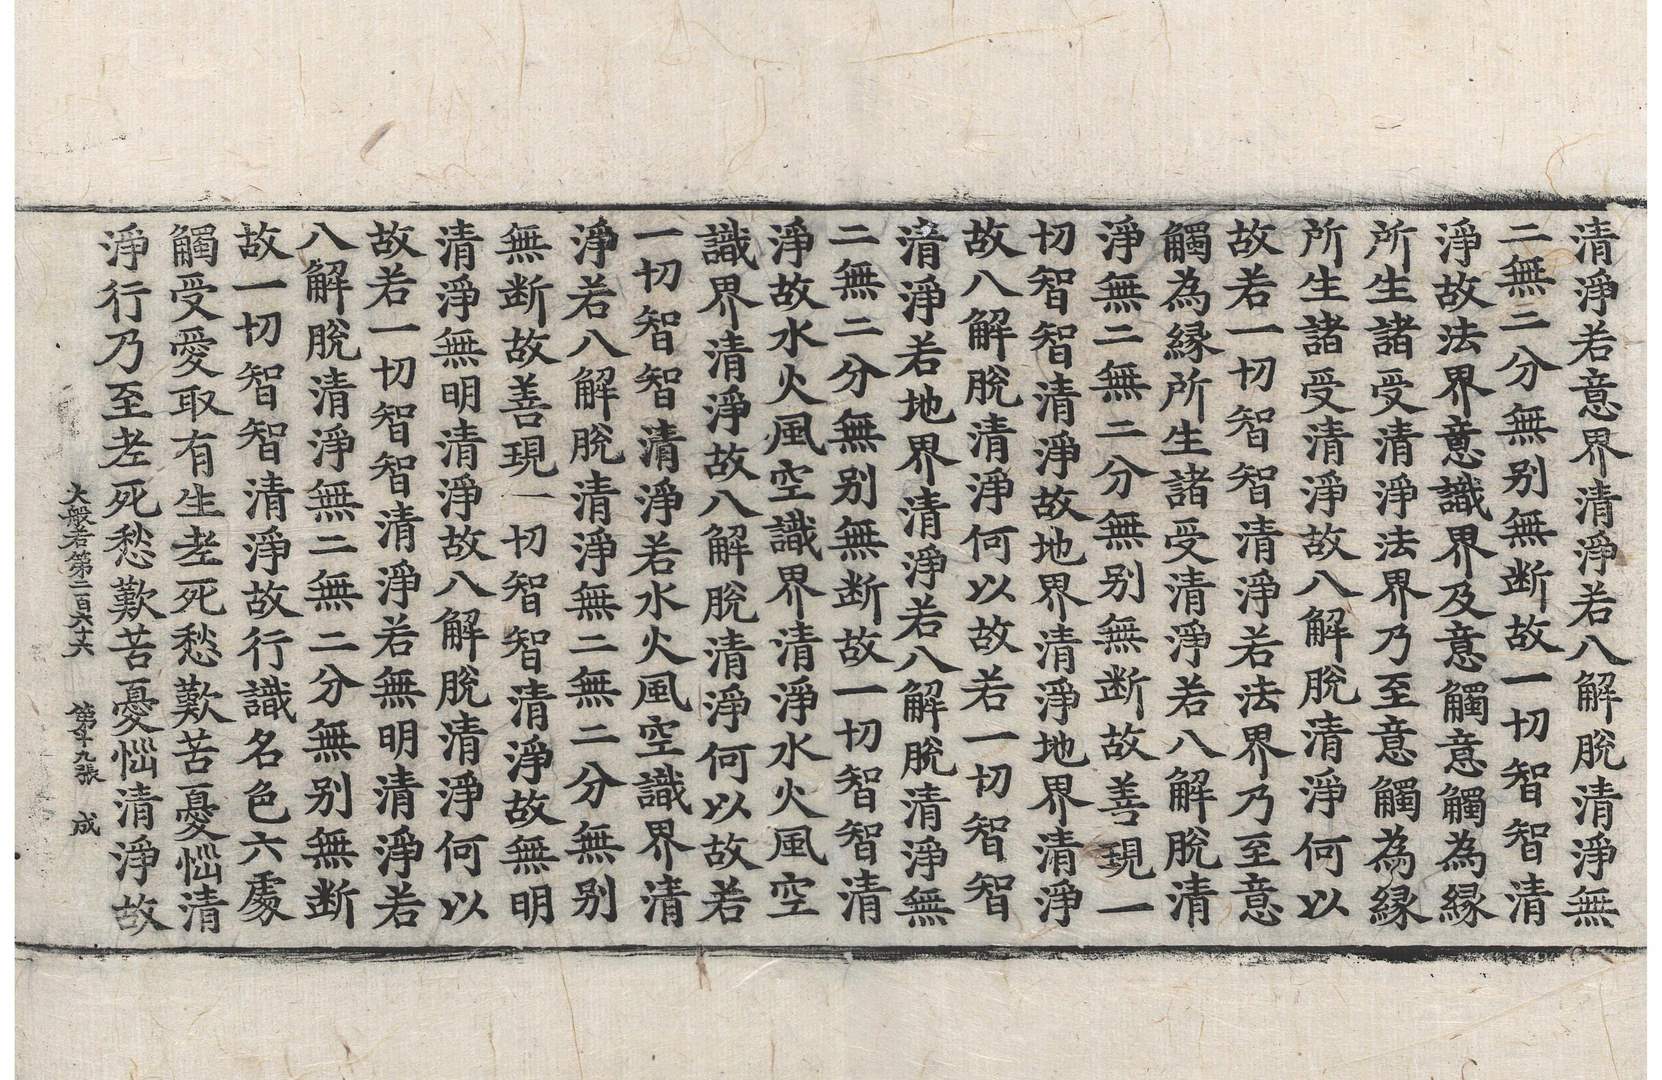 清淨若意界清淨若八解脫清淨無
二無二分無别無断故一切智智清
淨故法界意識界及意觸意觸為縁
所生諸受清淨法界乃至意觸為縁
所生諸受清淨故八解脫清淨何以
故若一切智智清淨若法界乃至意
觸為縁所生諸受清淨若八解脫清
淨無二無二分無别無断故善現一
切智智清淨故地界清淨地界清淨
故八解脫清淨何以故若一切智智
清淨若地界清淨若八解脫清淨無
二無二分無别無断故一切智智清
淨故水火風空識界清淨水火風空
識界清淨故八解脫清淨何以故若
一切智智清淨若水火風空識界清
淨若八解脫清淨無二無二分無别
無断故善現一切智智清淨故無明
清淨無明清淨故八解脫清淨何以
故若一切智智清淨若無明清淨若
八解脫清淨無二無二分無别無断
故一切智智清淨故行識名色六處
觸受愛取有生老死愁歎苦憂惱清
淨行乃至老死愁歎苦憂惱清淨故
大般若第二百六十六 第十九張 成